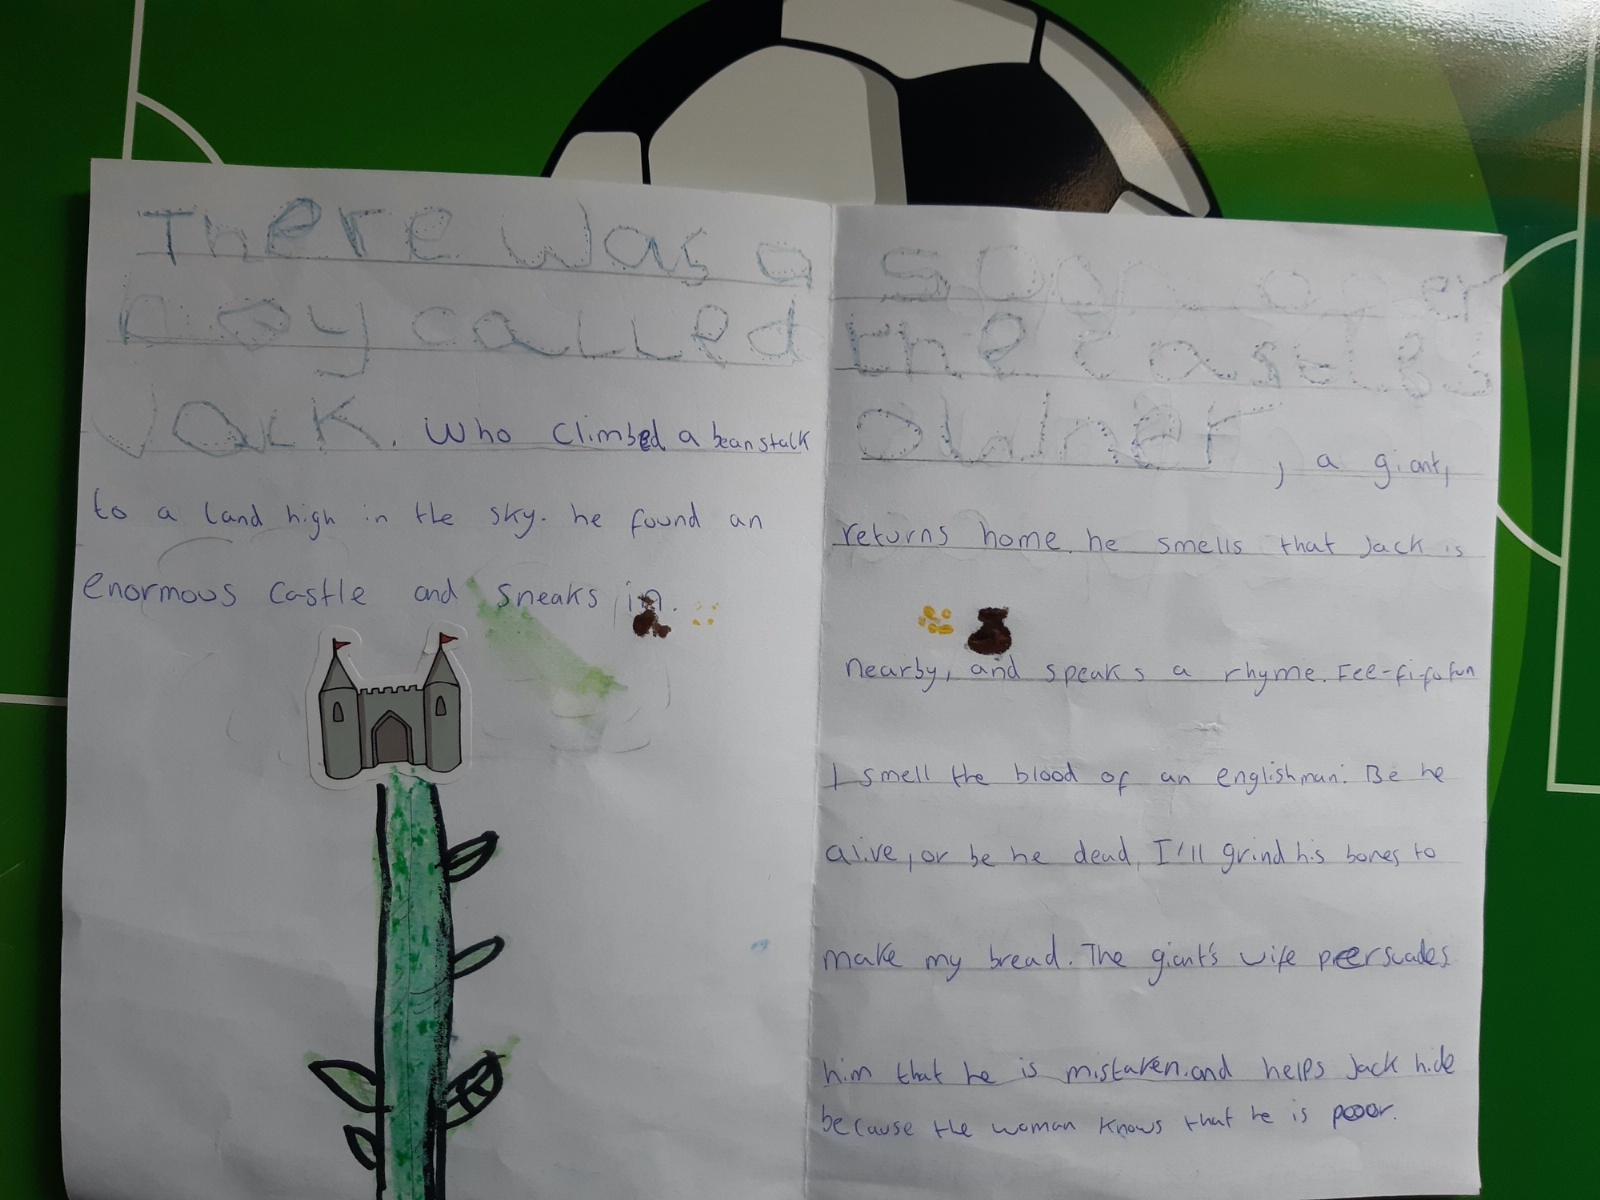 There was a
boy called
Jack. Who climbed a beanstalk
to a land high in the sky. he found an
enormous castle and sneaks in.
Soon after
the castles
owner, a giant,
returns home. he smells that Jack is
nearby, and speaks a rhyme. Fee-fi-fo fum
I smell the blood of an englishman: Be he
alive, or be he dead, I'll grind his bones to
make my bread. The giant's wife peersuades
him that he is mistaken.and helps Jack hide
because the woman knows that he is pooor.